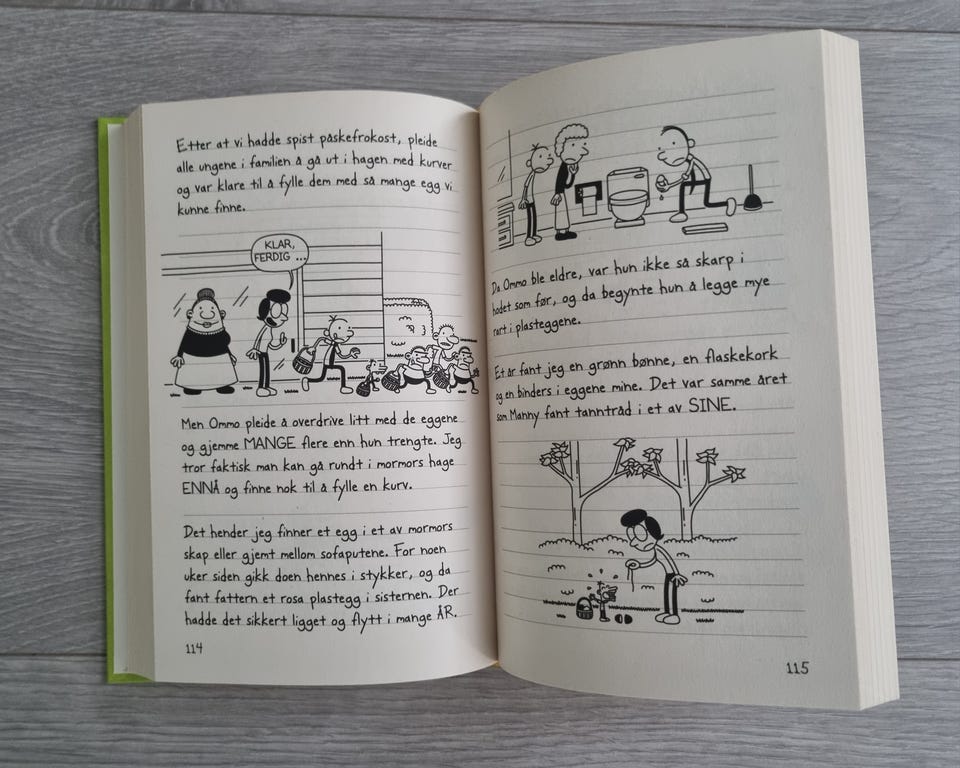 Etter at vi hadde spist påskefrokost, pleide
alle ungene i familien å gå ut i hagen med kurver
og var klare til å fylle dem med så mange egg vi
kunne finne.
KLAR,
FERDIG ...
Men Ommo pleide å overdrive litt med de eggene
og gjemme MANGE flere enn hun trengte. Jeg
tror faktisk man kan gå rundt i mormors hage
ENNÅ og finne nok til å fylle en kurv.
Det hender jeg finner et egg i et av mormors
skap eller gjemt mellom sofaputene. For noen
uker siden gikk doen hennes i stykker, og da
fant fattern et rosa plastegg i sisternen. Der
hadde det sikkert ligget og flytt i mange ÅR.
114
Da Ommo ble eldre, var hun ikke så skarp i
hodet som før, og da begynte hun å legge mye
rart i plasteggene.
Et år fant jeg en grønn bønne, en flaskekork
og en binders i eggene mine. Det var samme året
som Manny fant tanntråd i et av SINE.
115